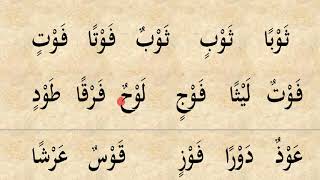 ثَوْبًا ثَوْبٍ ثَوْبٌ فَوْتًا فَوْتٍ
فَوْتٌ لَيْثًا فَوْجٍ لَوْحٌ فَرْقًا طَوْدٍ
عَوْذٌ دَوْرًا فَوْزٍ قَوْسٌ عَرْشًا